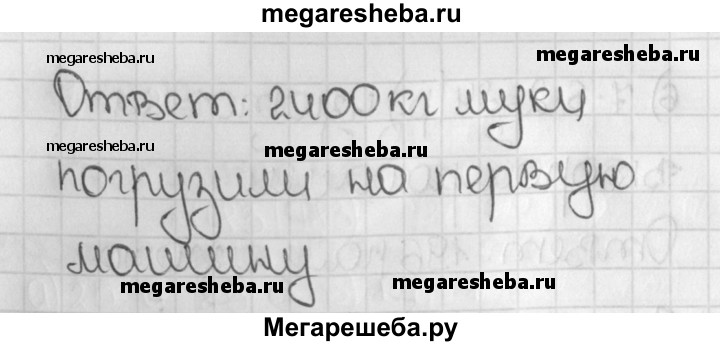 megaresheba.ru
megaresheba.ru
megaresheba.ru
Ответ: 2400 кг муки
megaresheba.ru
megaresheba.ru
погрузили на первую
машину
megaresheba.ru
megaresheba.ru
Мегарешеба.ру